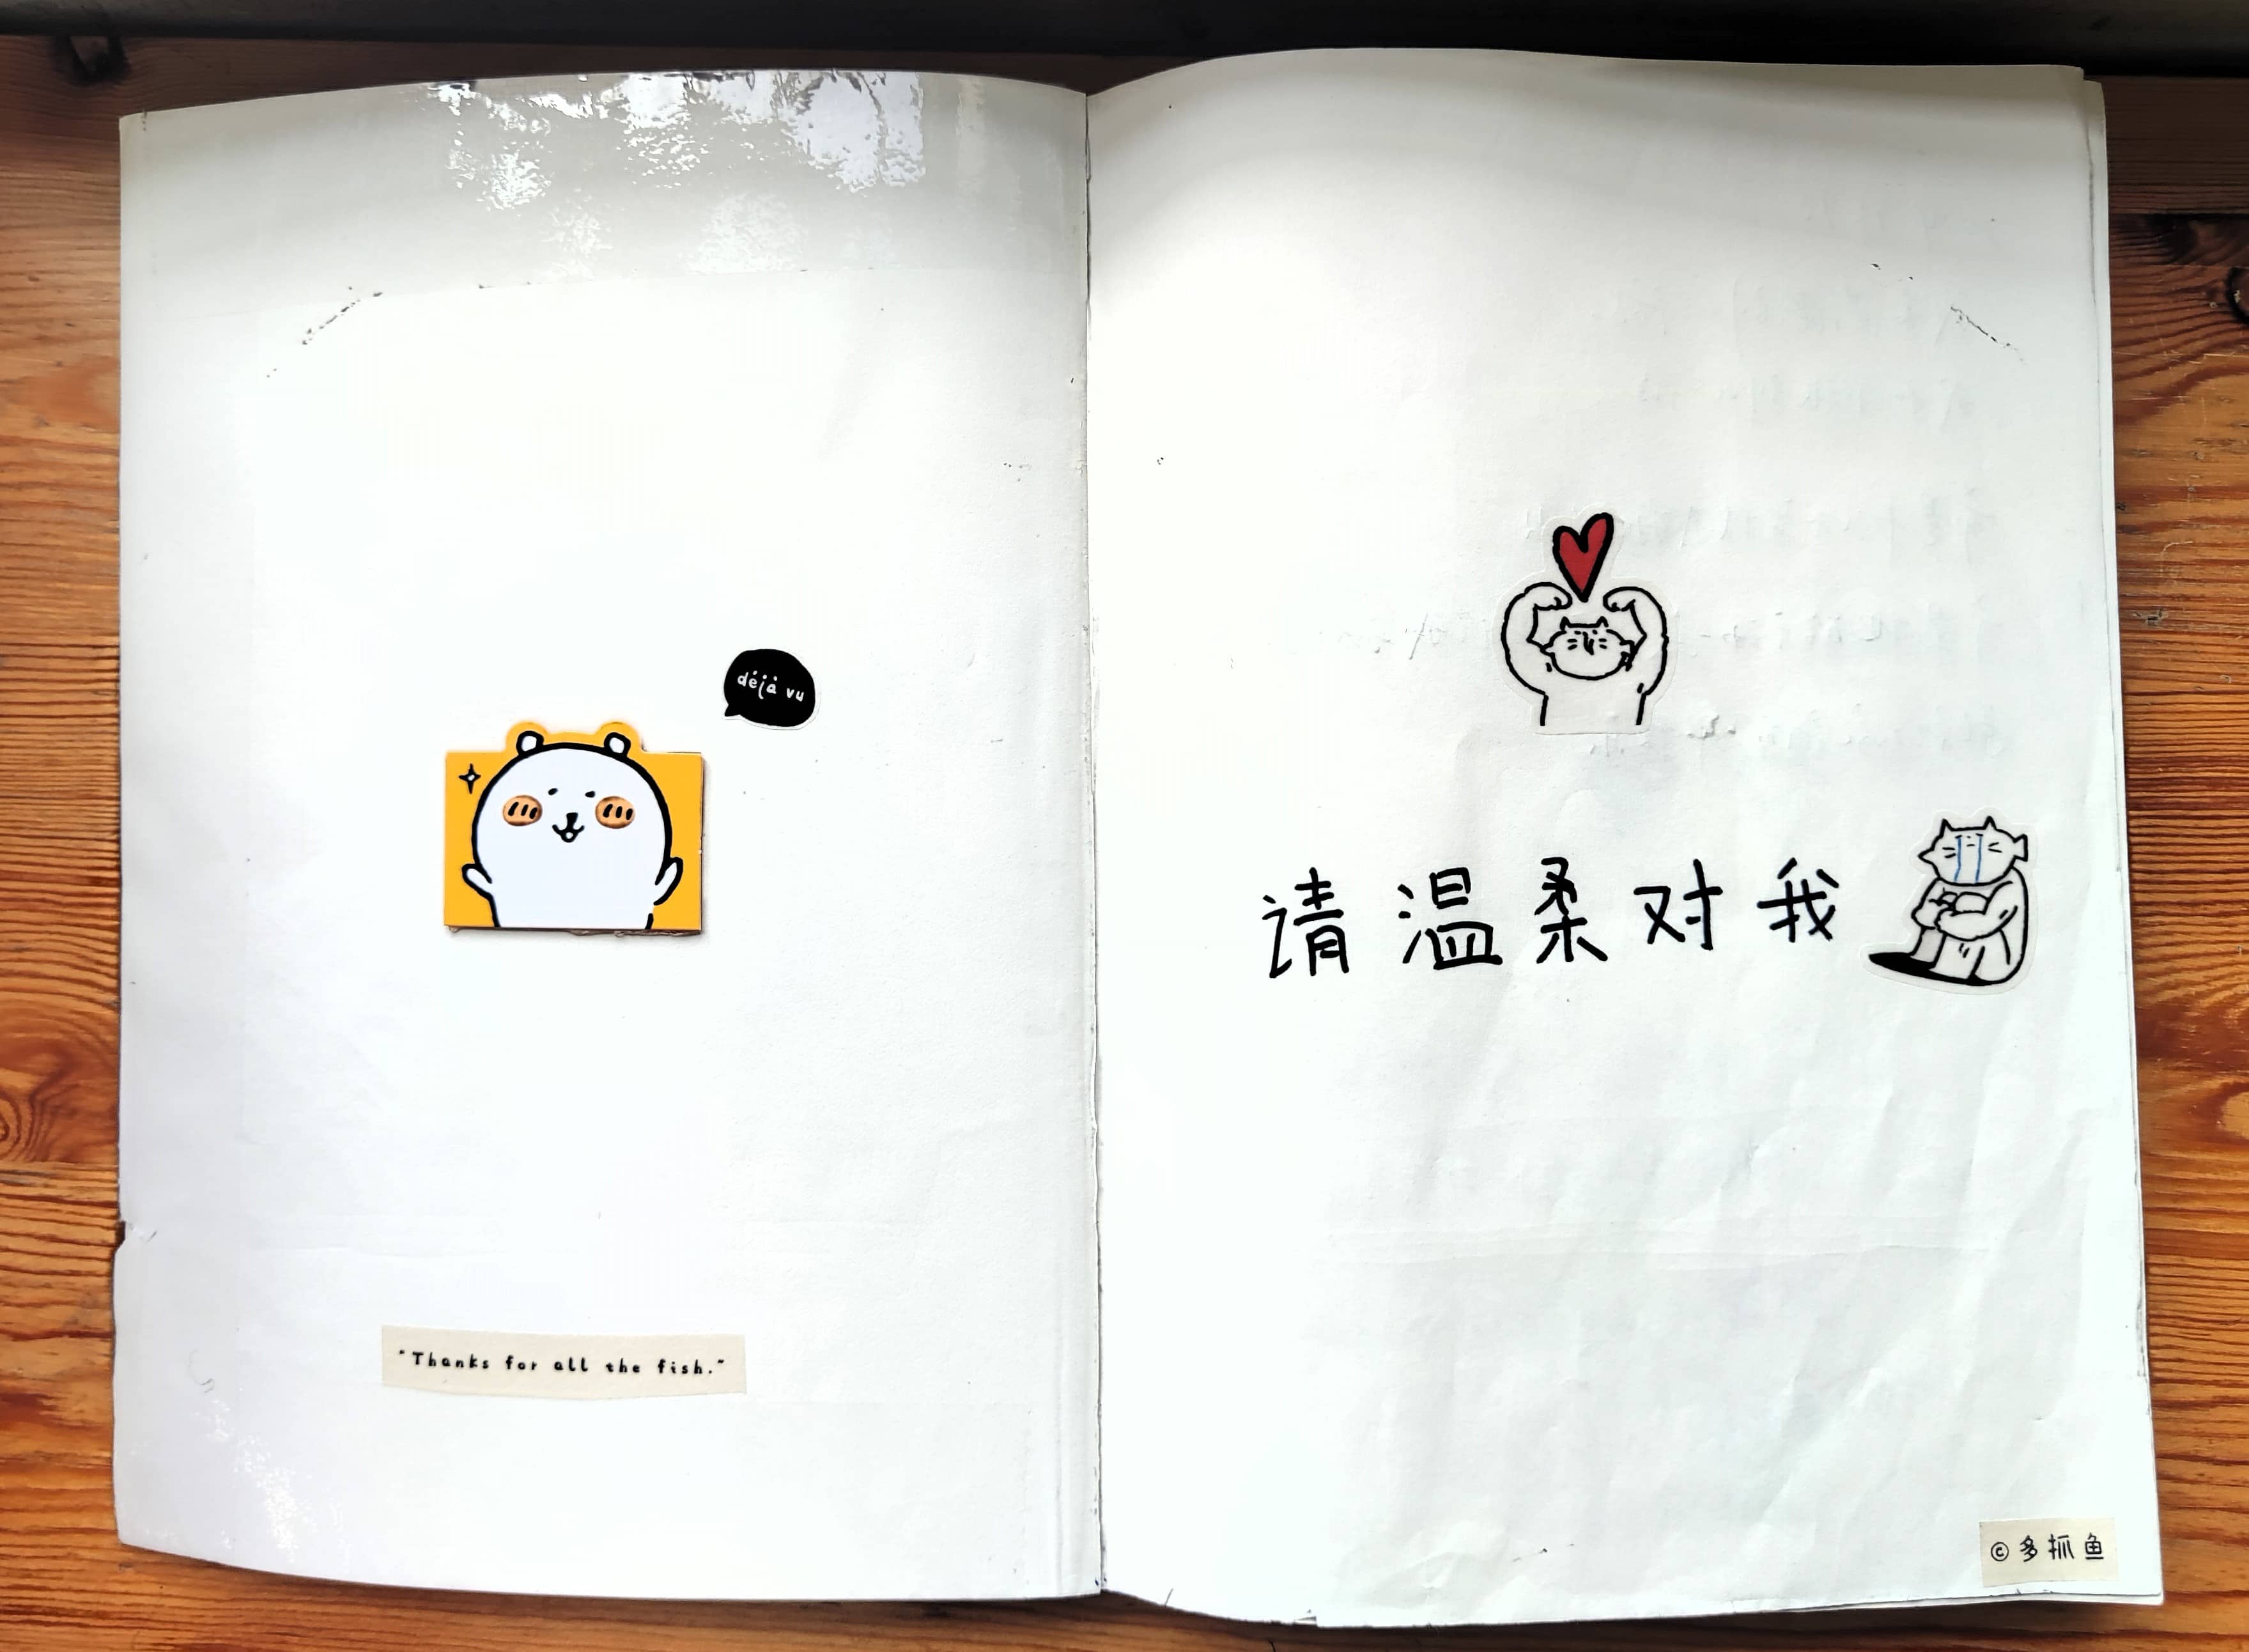 déjà vu
"Thanks for all the fish."
请温柔对我
©多抓鱼